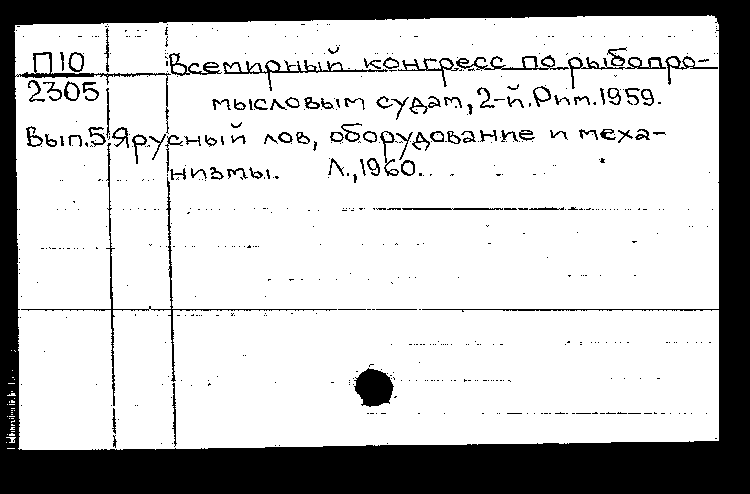 П10 Всемирный конгресс по рыбопро-
2305 мысловым судам, 2-й. Рим. 1959.
Вып.5. Ярусный лов, оборудование и меха-
низмы. Л., 1960.